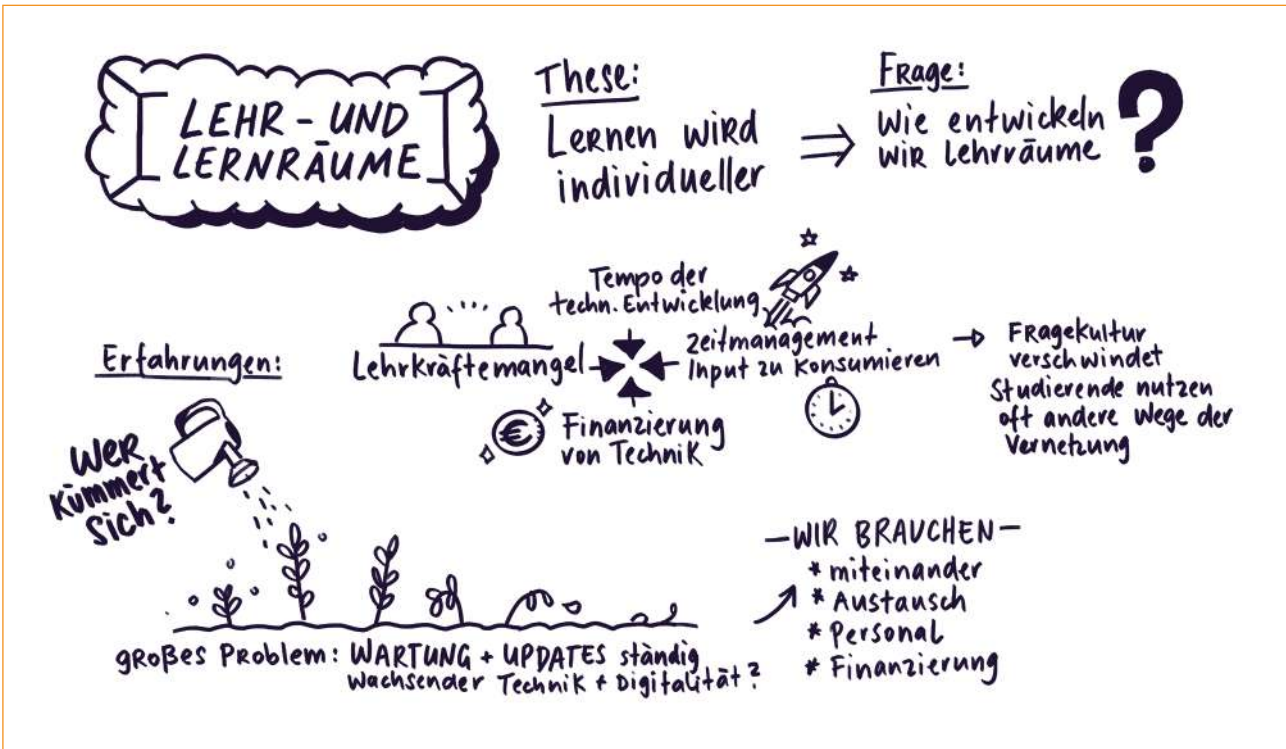 LEHR - UND
LERNRÄUME
These:
Lernen wird
individueller
Frage:
Wie entwickeln
wir Lehrräume
?
Erfahrungen:
Lehrkräftemangel
Tempo der
techn. Entwicklung
Zeitmanagement
Input zu konsumieren
Finanzierung
von Technik
€
Fragekultur
verschwindet
Studierende nutzen
oft andere Wege der
Vernetzung
Wer
kümmert
sich?
großes Problem: WARTUNG + UPDATES ständig
wachsender Technik + Digitalität?
—WIR BRAUCHEN—
* miteinander
* Austausch
* Personal
* Finanzierung